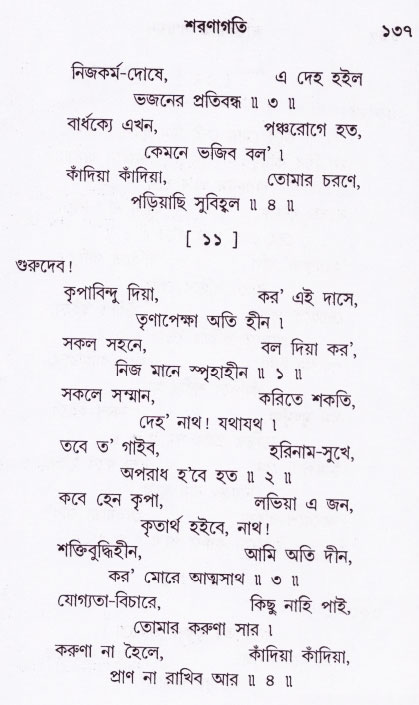 শরণাগতি ১৩৭
নিজকর্ম-দোষে, এ দেহ হইল
ভজনের প্রতিবন্ধ ॥ ৩ ॥
বার্ধক্যে এখন, পঞ্চরোগে হত,
কেমনে ভজিব বল' ।
কাঁদিয়া কাঁদিয়া, তোমার চরণে,
পড়িয়াছি সুবিহ্বল ॥ ৪ ॥
[ ১১ ]
গুরুদেব !
কৃপাবিন্দু দিয়া, কর' এই দাসে,
তৃণাপেক্ষা অতি হীন ।
সকল সহনে, বল দিয়া কর',
নিজ মানে স্পৃহাহীন ॥ ১ ॥
সকলে সম্মান, করিতে শকতি,
দেহ' নাথ! যথাযথ ।
তবে ত' গাইব, হরিনাম-সুখে,
অপরাধ হ'বে হত ॥ ২ ॥
কবে হেন কৃপা, লভিয়া এ জন,
কৃতার্থ হইবে, নাথ!
শক্তিবুদ্ধিহীন, আমি অতি দীন,
কর' মোরে আত্মসাথ ॥ ৩ ॥
যোগ্যতা-বিচারে, কিছু নাহি পাই,
তোমার করুণা সার ।
করুণা না হৈলে, কাঁদিয়া কাঁদিয়া,
প্রাণ না রাখিব আর ॥ ৪ ॥